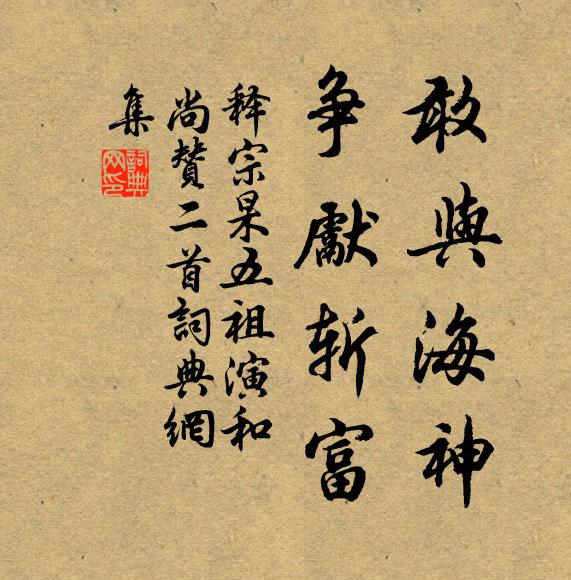 敢與海神
争獻斩富
释宗杲五祖演和
尚贊二首詞典網
集
詞典
网印